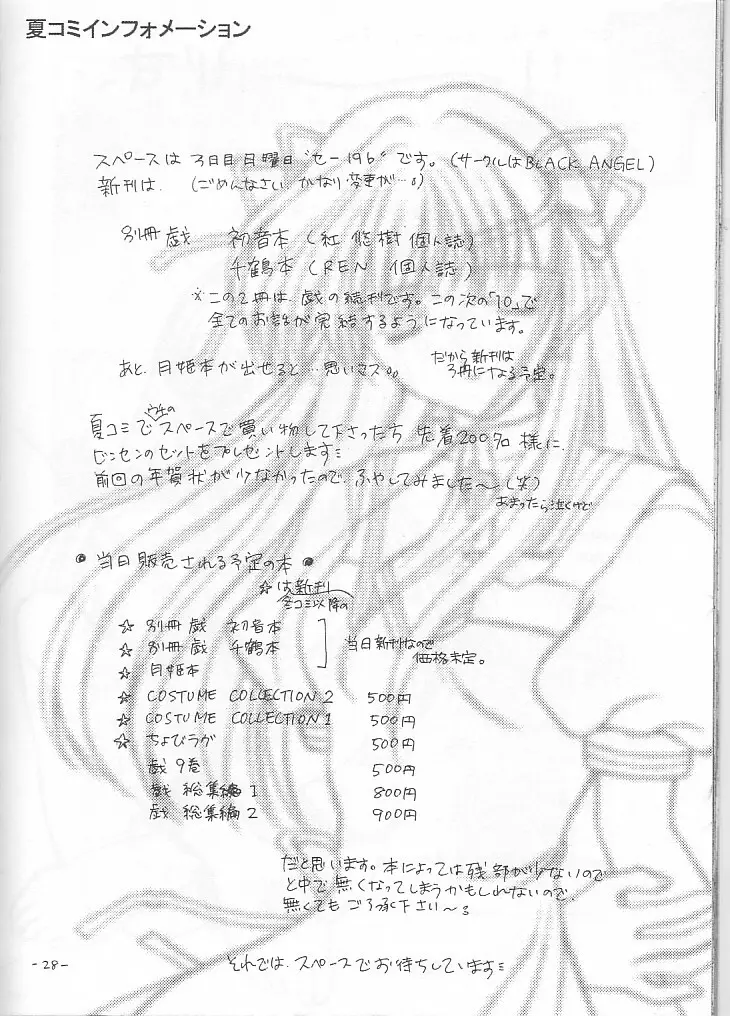 夏コミインフォメーション
スペースは 3日目 月曜日 "セー19b" です。(サークルはBLACK ANGEL)
新刊は、(ごめんなさい、かなり変更が…。)
別冊 戯 初音本 (紅 悠樹 個人誌)
千鶴本 (REN 個人誌)
※この2冊は、戯の続刊です。この次の「10」で
全てのお話が完結するようになっています。
あと、月姫本が出せると…思いマス。。
だから新刊は
3冊になる予定。
夏コミでウチのスペースで買い物して下さった方 先着200名様に、
ビンセンのセットをプレゼントします
前回の年賀状が少なかったので、ふやしてみました〜(笑)
あまったら泣くけど
● 当日販売される予定の本 ●
☆は新刊
冬コミ以降の
☆ 別冊 戯 初音本
☆ 別冊 戯 千鶴本
☆ 月姫本
当日新刊なので
価格未定。
☆ COSTUME COLLECTION 2 500円
☆ COSTUME COLLECTION 1 500円
☆ ちょびラグ 500円
戯 9巻 500円
戯 総集編 1 800円
戯 総集編 2 900円
だと思います。本によっては残部が少ないので
と中で無くなってしまうかもしれないので、
無くてもご了承下さい〜。
それでは、スペースでお待ちしています
-28-